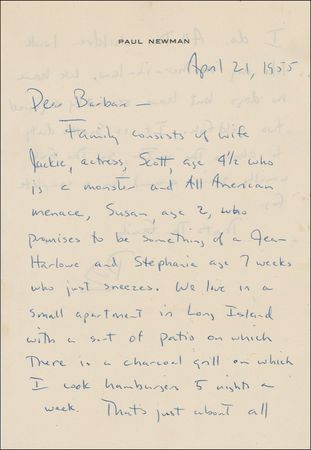 PAUL NEWMAN
April 21, 1955
Dear Barbara —
Family consists of wife
Jackie, actress, Scott, age 4½ who
is a monster and All American
menace, Susan, age 2, who
promises to be something of a Jean
Harlowe and Stephanie age 7 weeks
who just sneezes. We live in a
small apartment in Long Island
with a sort of patio on which
There is a charcoal grill on which
I cook hamburgers 5 nights a
week. That's just about all